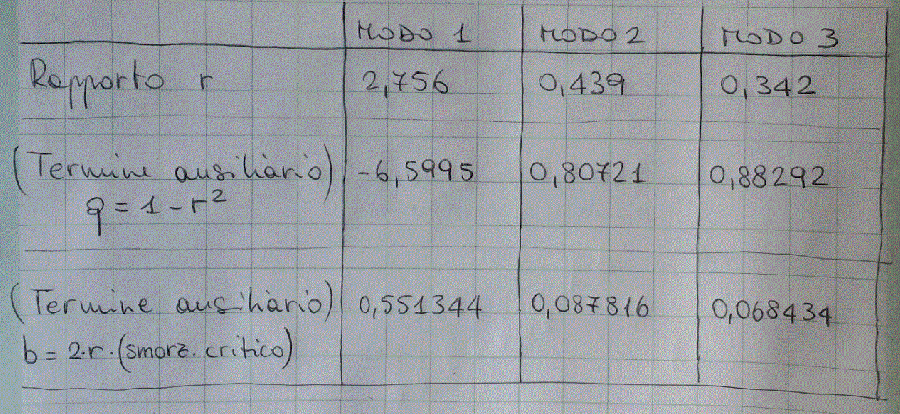 MODO 1 MODO 2 MODO 3
Rapporto r 2,756 0,439 0,342
(Termine ausiliario) -6,5995 0,80721 0,88292
q = 1 - r²
(Termine ausiliario) 0,551344 0,087816 0,068434
b = 2·r·(smorz. critico)